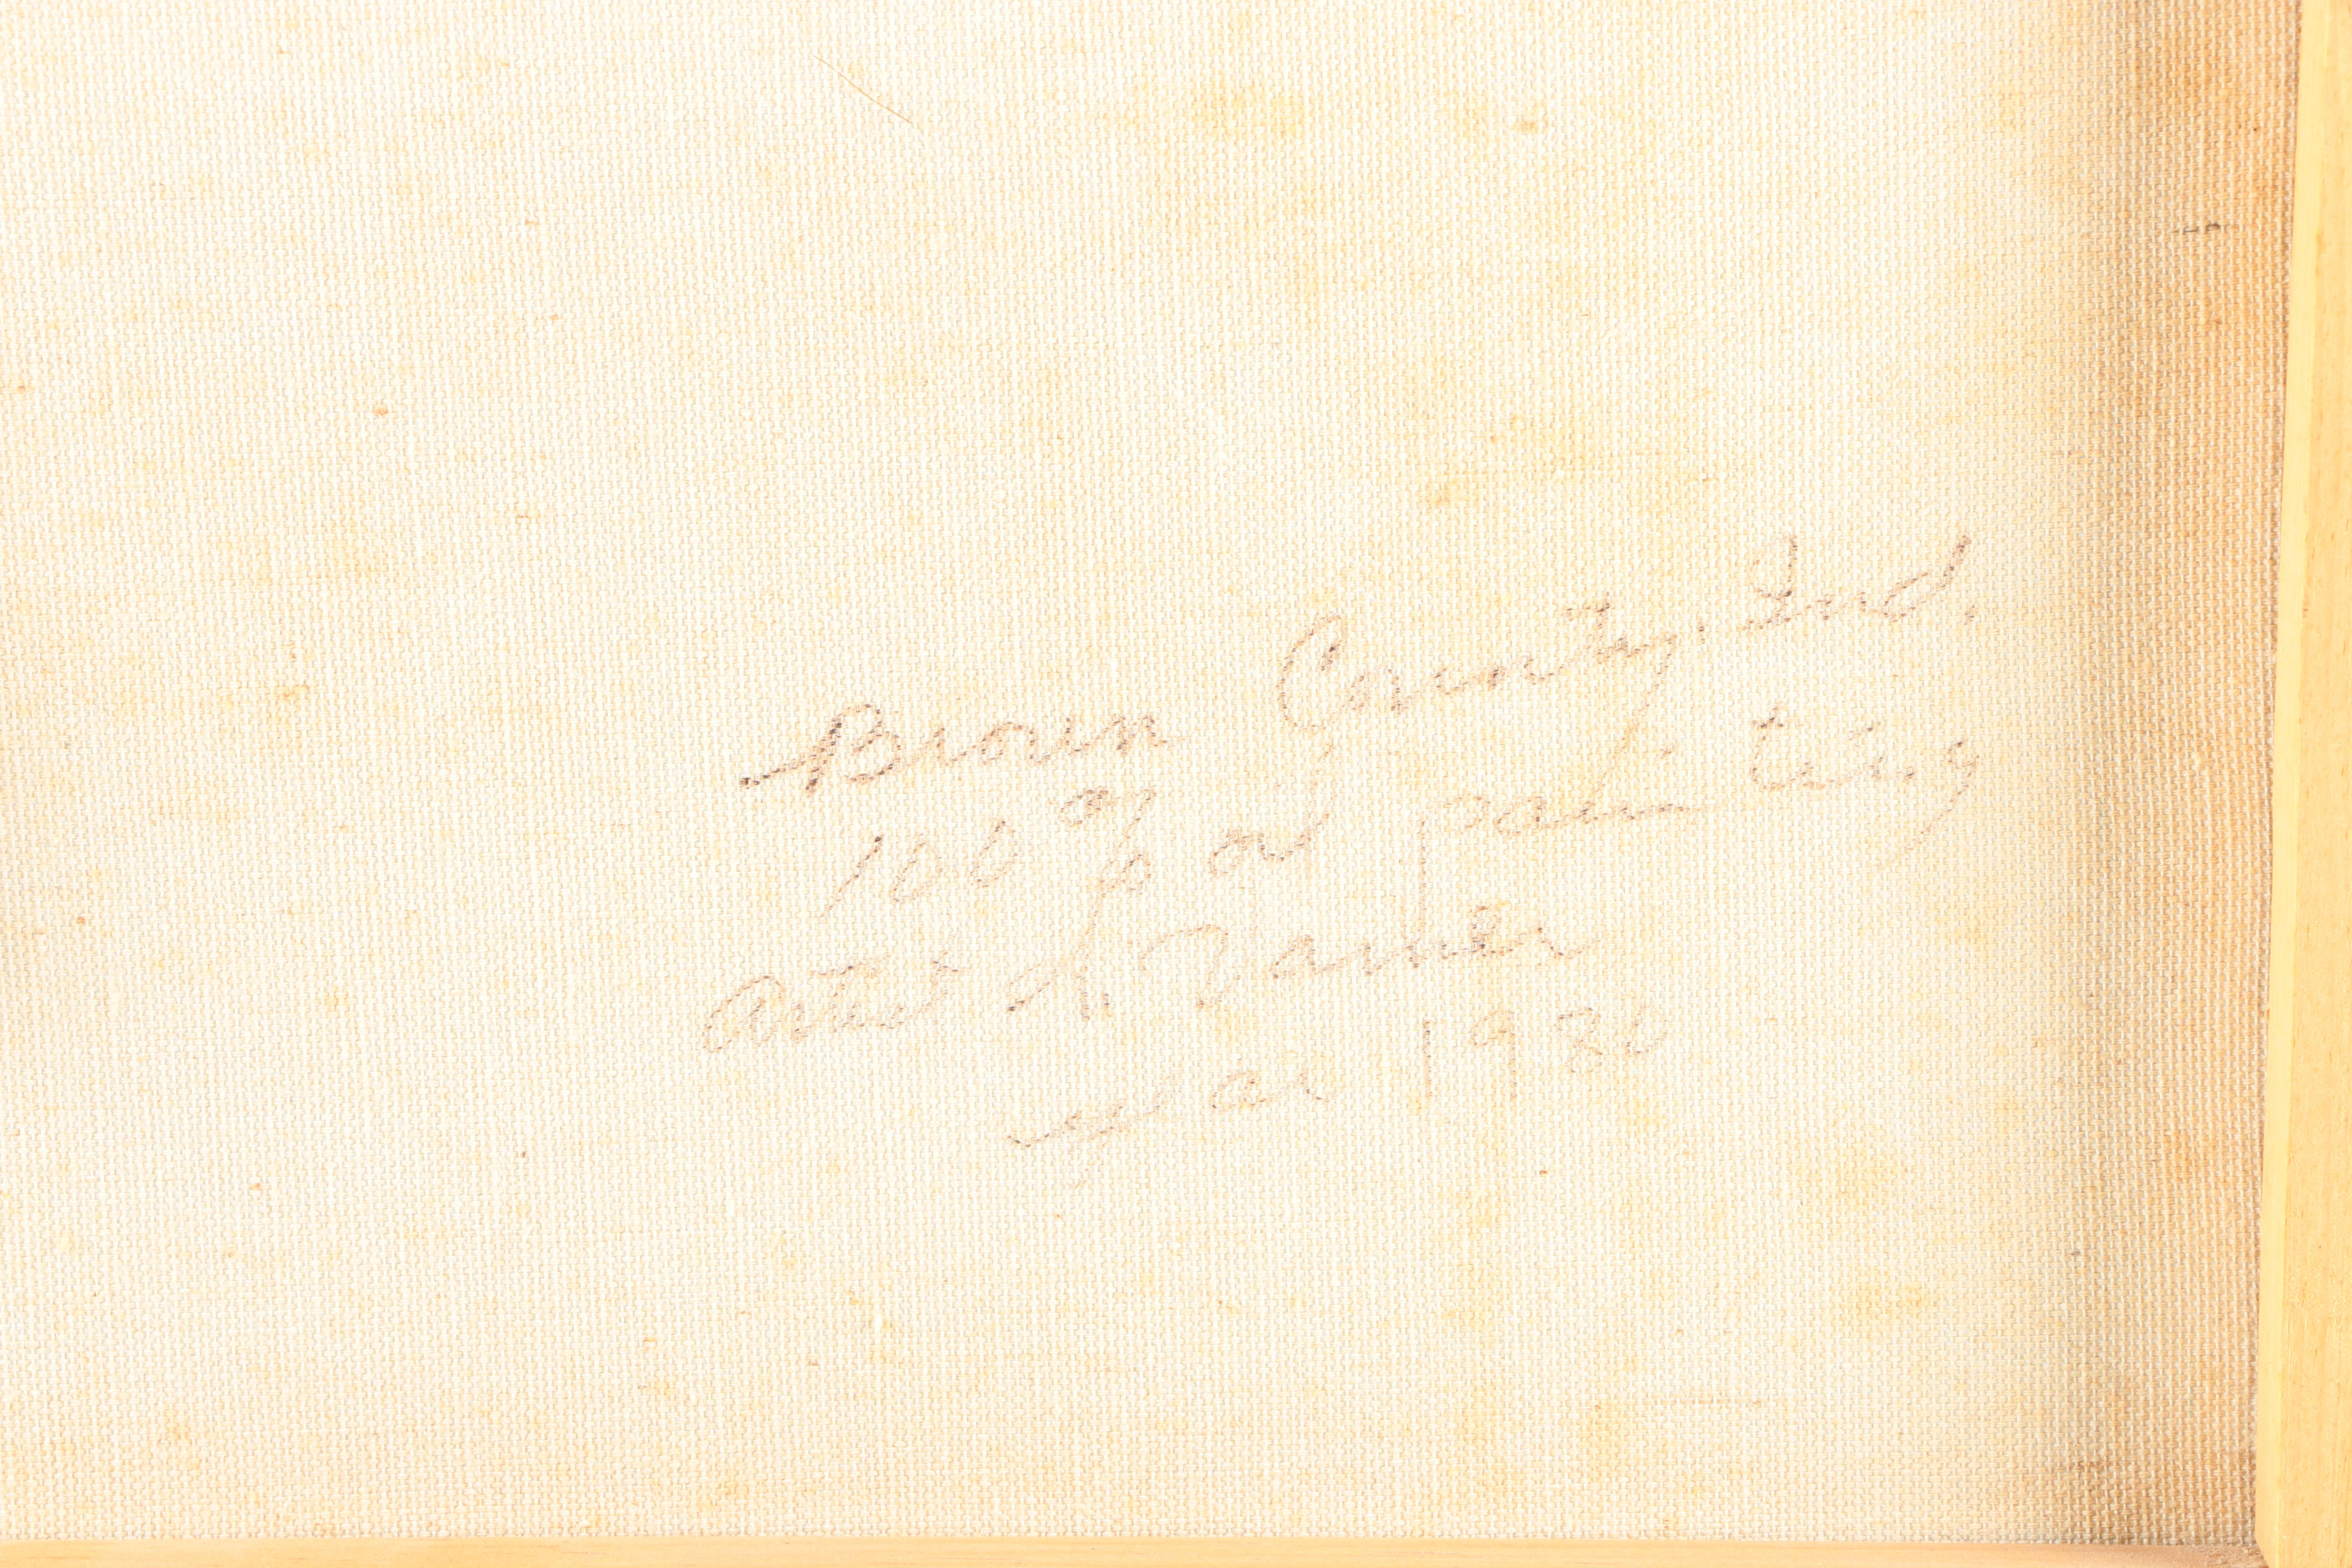 Brown County. Ind.
100 % oil painting
Artist
year 1930